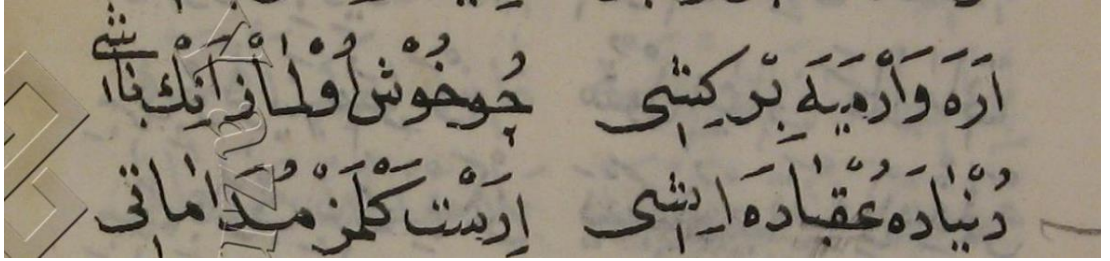 اَرَهَ وَاَرْمَيَهَ بْر كِشِى جُوخُوْشْ اُوْلمازْ اَنِكْ باشى
دُنْيادَه عُقْبادَه اِيشِى اِرَسْتَ كَلْمَزْ مُدَاماتى